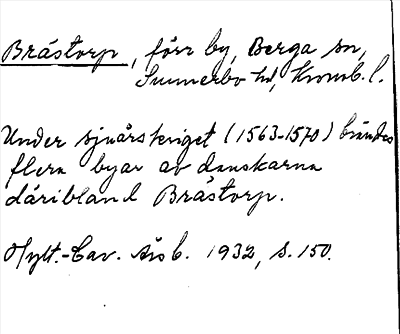 Bråstorp, förr by, Berga sn,
Sunnerbo hd, Kronob. l.
Under sjuårskriget (1563-1570) brändes
flera byar av danskarna
däribland Bråstorp.
Hylt.-Cav. Årsb. 1932, s. 150.